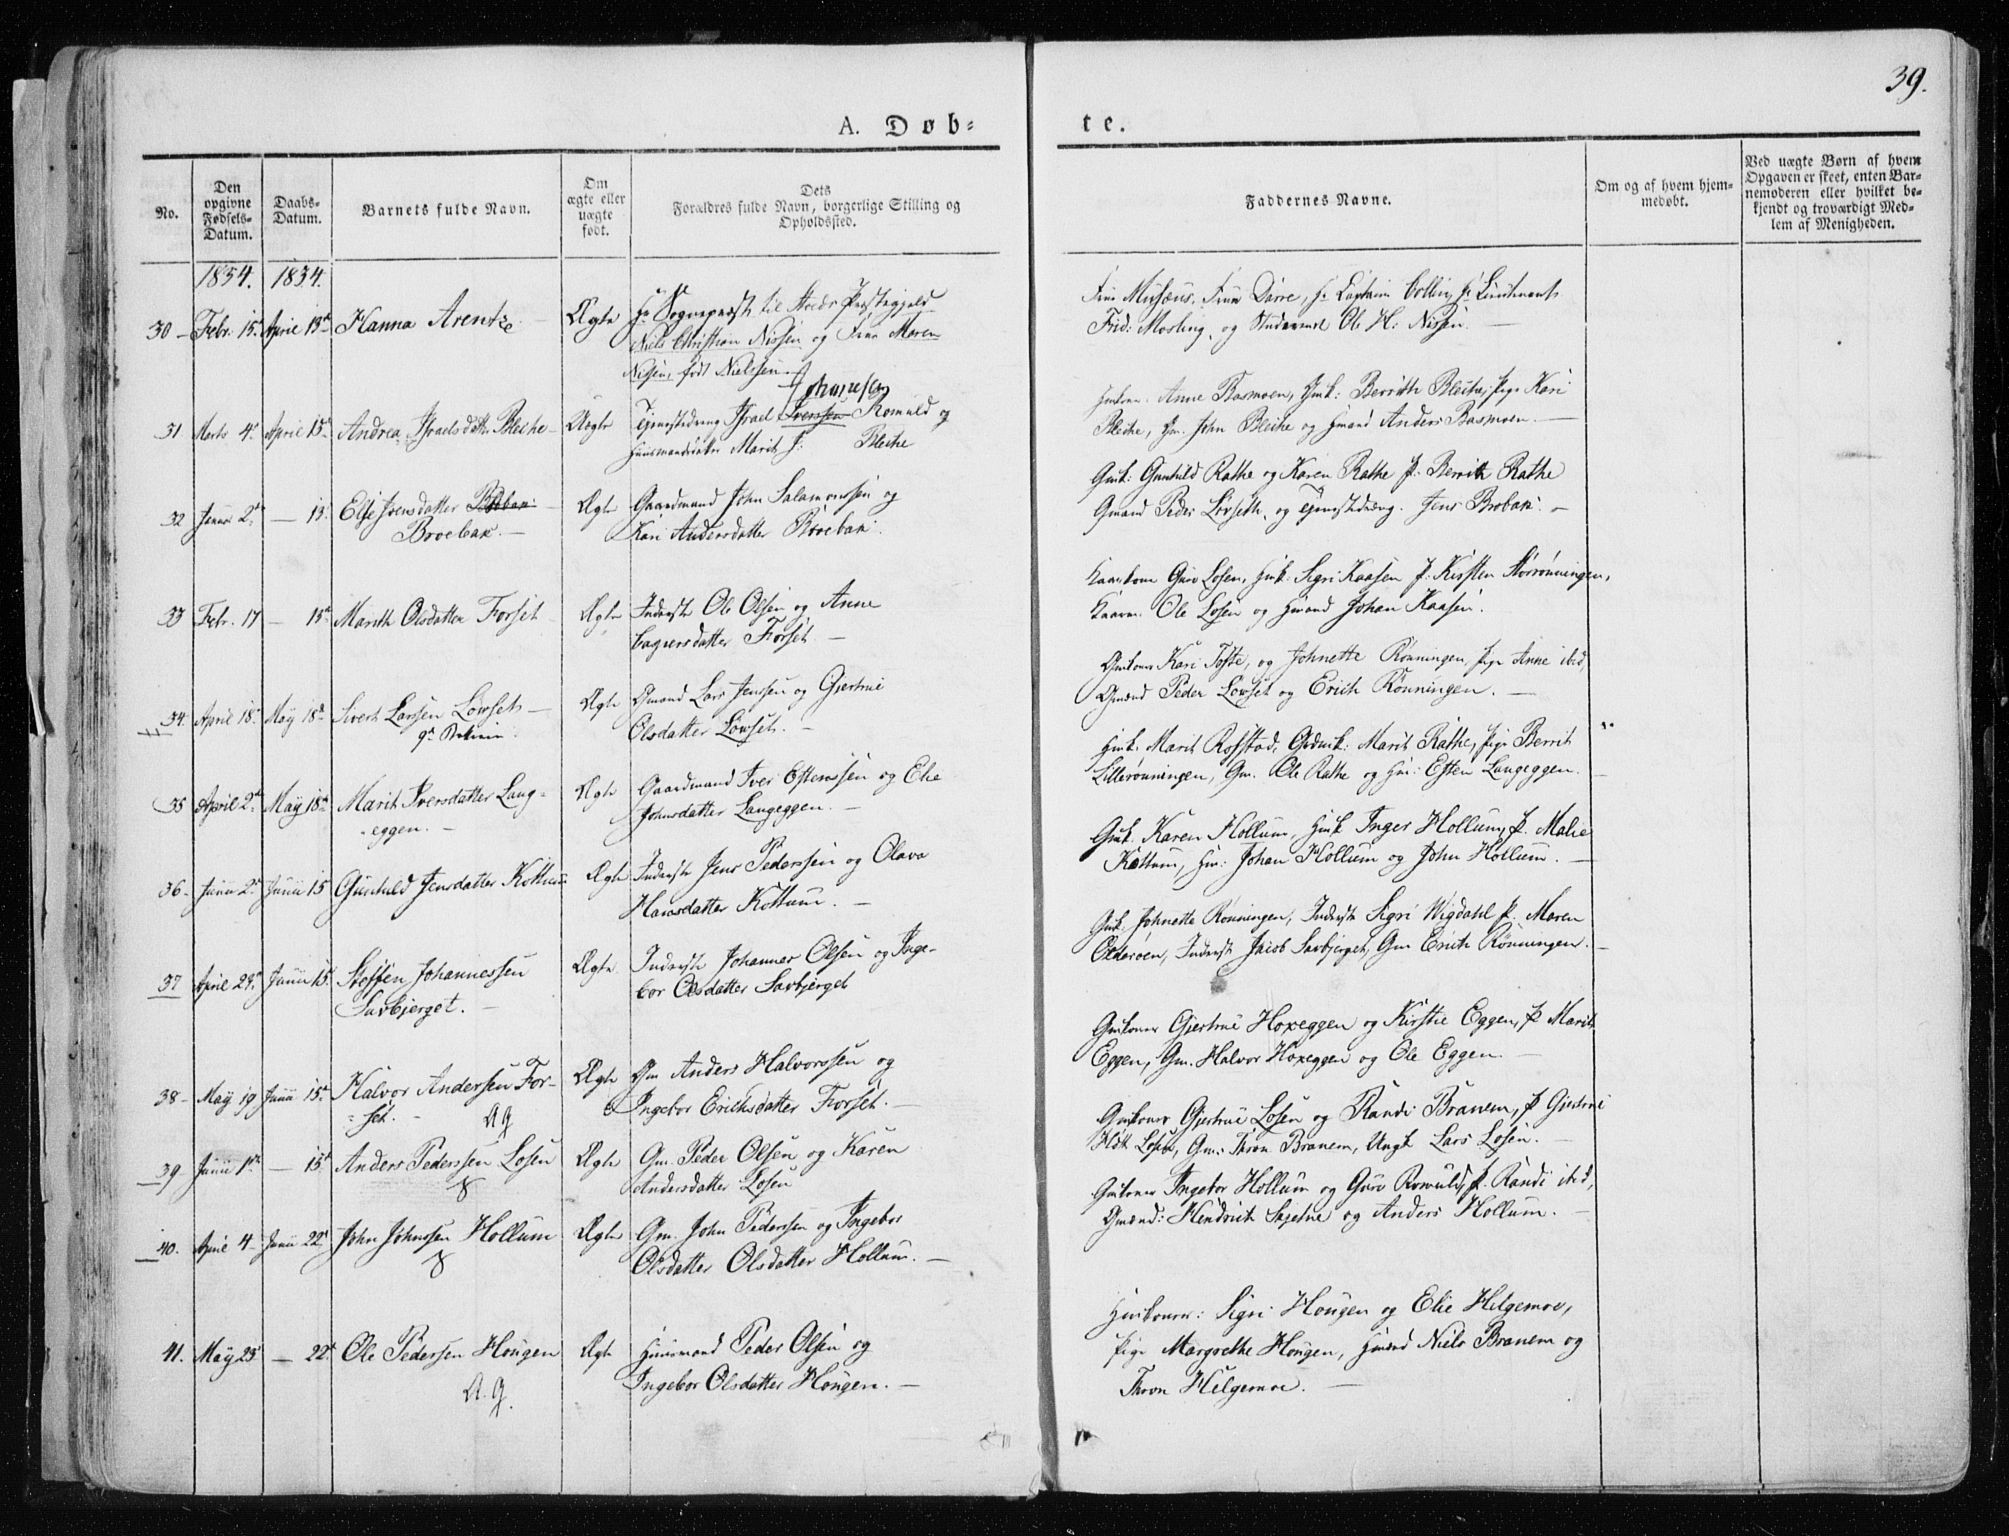 39.
A. Døb-
te.
No.
Den opgivne Fødsels-Datum.
Daabs-Datum.
Barnets fulde Navn.
Om ægte eller uægte født.
Dets
Forældres fulde Navn, borgerlige Stilling og
Opholdssted.
Faddernes Navne.
Om og af hvem hjem-
medøbt.
Ved uægte Børn af hvem
Opgaven er skeet, enten Bar-
nemoderen eller hvilket be-
kjendt og troværdigt Med-
lem af Menigheden.
1834. 1834.
30 Febr. 15. April 13 Hanna Arentze Ægte Hr Sognepræst til Præstegjeld
Niels Christian Nissen og Frue Maren
Nissen, født Nielssen.
Frue Musæus, Frue Darre, Hr Captain Collin, Hr Lieutenant
Frid: Mosling, og Student Ole H: Nissen.
31 Marts 4. April 13 Andrea Israelsdatter Bleike Uægte Tjenestedreng Israel Iverssen Johannesen Romuld og
Huusmandsenke Marit J: Bleike
Anne Basmoen, Gmk: Berrith Bleike, Pige Kari
Bleike, Gm. John Bleike og Hmand Anders Basmoen.
32 Januar 2. — 13. Else Jensdatter Brobak
Broebak. Ægte Gaardmand John Salamonsen og
Kari Andersdatter Broebak.
Gmk: Gunhild Rathe og Karen Rathe P. Berrith Rathe
Gmand Peder Løvseth, og Tjenestedreng. Jens Brobak.
33 Febr. 17 — 13 Marith Olsdatter Forset Ægte Inderste Ole Olsen og Anne
Forset.
Guro Losen, Hmk: Sigri Kaasen P. Kirsten Storrønningen,
Ole Losen og Hmand Johan Kaasen.
34 April 18. May 18 Sivert Larssen Løvset Ægte Gmand Lars Jensen og Gjertrue
Olsdatter Løvset.
Gmkoner Kari Tofte, og Johnette Rønningen, Pige Anne ibid,
Gmænd Peder Løvset og Erich Rønningen.
35 April 2. May 18 Marit Iversdatter Lang-
eggen. Ægte Gaardmand Iver Estenssen og Elie
Johnsdatter Langeggen.
Hmk. Marit Rosstad, Gmk: Marit Rathe, Pige Berrit
Lillerønningen, Gm. Ole Rathe og Hm: Esten Langeggen.
36 Junii 2. Junii 15 Gunhild Jensdatter Kottum Ægte Inderste Jens Pederssen og Olava
Hansdatter Kottum.
Gmk. Karen Hollum, Hmk Inger Hollum, P. Malie
Kottum, Hm: Johan Hollum og John Hollum.
37 April 29. Junii 15. Steffen Johannessen
Savbjerget. Ægte Inderste Johannes Olsen og Inge-
bor Olsdatter Savbjerget
Gmk. Johnette Rønningen, Inderste Sigri Wigdahl P. Maren
Olderøen, Inderste Jacob Savbjerget, Gm Erich Rønningen.
38 May 19 Junii 15. Halvor Anderssen For-
set. AG Ægte Gm Anders Halvorssen og
Ingebor Erichsdatter Forset.
Gmkoner Gjertrue Hoxeggen og Kirstie Eggen, P. Marit
Eggen, Gm. Halvor Hoxeggen og Ole Eggen.
39 Junii 1 — 15 Anders Pederssen Losen Ægte Gm. Peder Olsen og Karen
Andersdatter Losen
Gmkoner Gjertrue Losen og Randi Branem, P. Gjertrue
Losen, Gm: Thron Branem, Ungk Lars Losen.
40. April 4 Junii 22 John Johnssen Hollum Ægte Gm. John Pederssen og Ingebor
Olsdatter Olsdatter Hollum.
Gmkoner Ingebor Hollum og Guro Romuld, P. Randi ibid,
Gmænd: Hendrich Skjetne og Anders Hollum.
41. May 25 — 22 Ole Pedersen Hougen A. G. Ægte Huusmand Peder Olsen og
Ingebor Olsdatter Hougen.
Hmkoner: Sigri Hougen og Elie Helgemoe,
Pige Margrethe Hougen, Hmænd Niels Branem og
Thron Helgemoe.